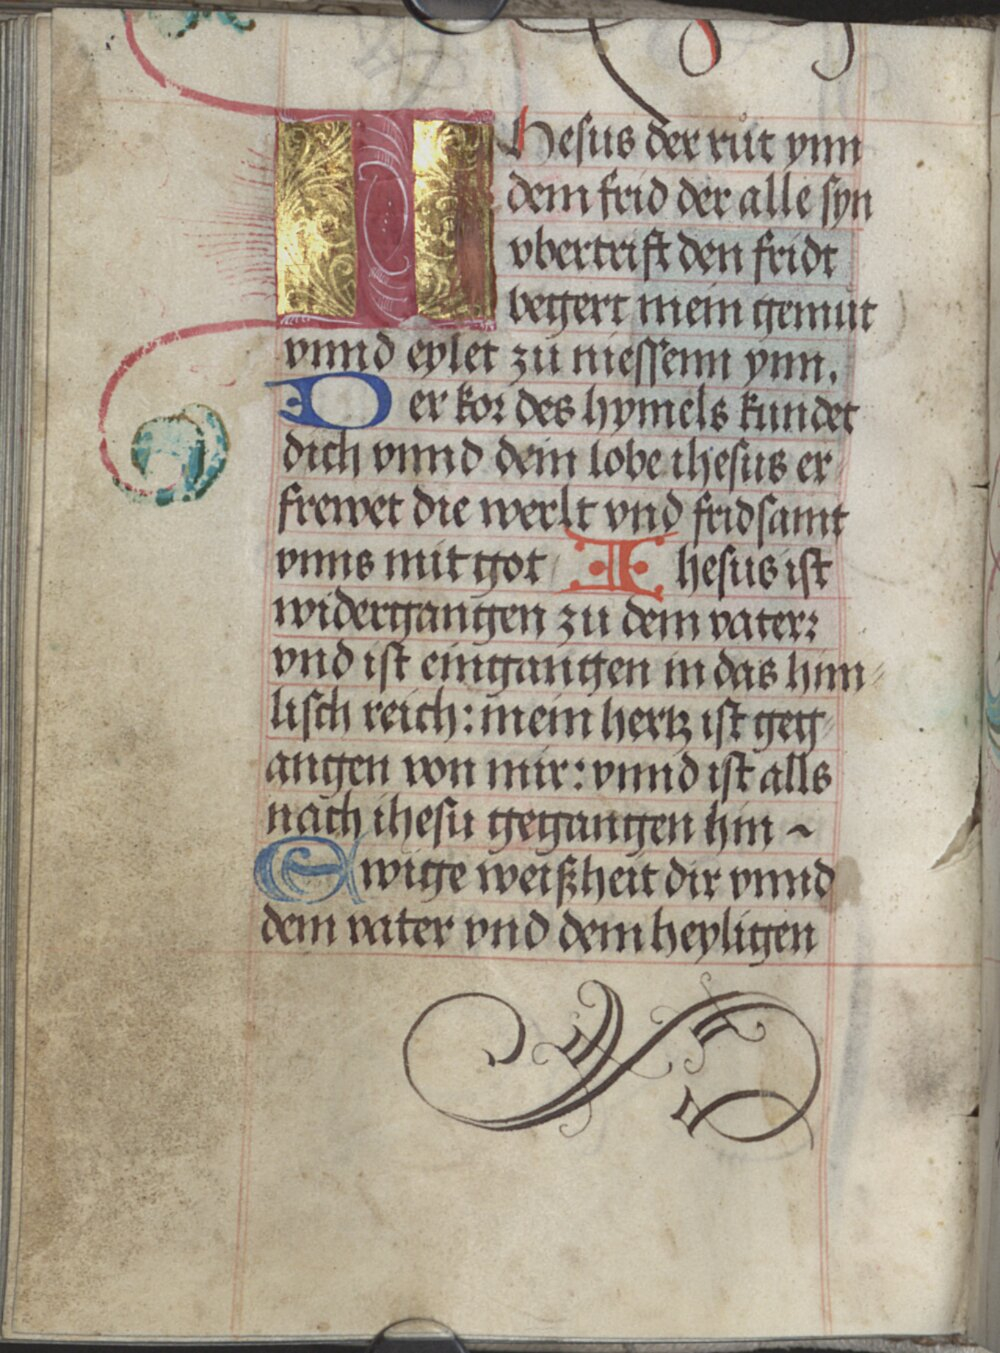 Ihesus der růt ynn
dem frid der alle syn
vbertrift den fridt
begert mein gemüt
vnnd eylet zu niessenn ynn.
Der kor des hymels kundet
dich vnnd dein lobe ihesus er
frewet die werlt vnd fridsamt
vnns mit got Ihesus ist
widergangen zu dem vater:
vnd ist eingangen in das him⸗
lisch reich: mein hertz ist geg⸗
angen von mir: vnnd ist alls
nach ihesu gegangen hin ~
Ewige weißheit dir vnnd
dem vater vnd dem heyligen